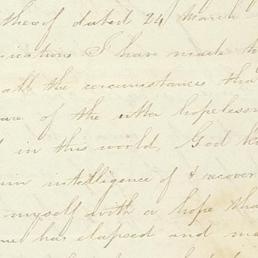 thereof dated 24 March
ication I have made th
all the circumstances tha
ure of the utter hopelessn
d in this world, God k
in intelligence of & recover
myself with a hope tha
me has elapsed and m